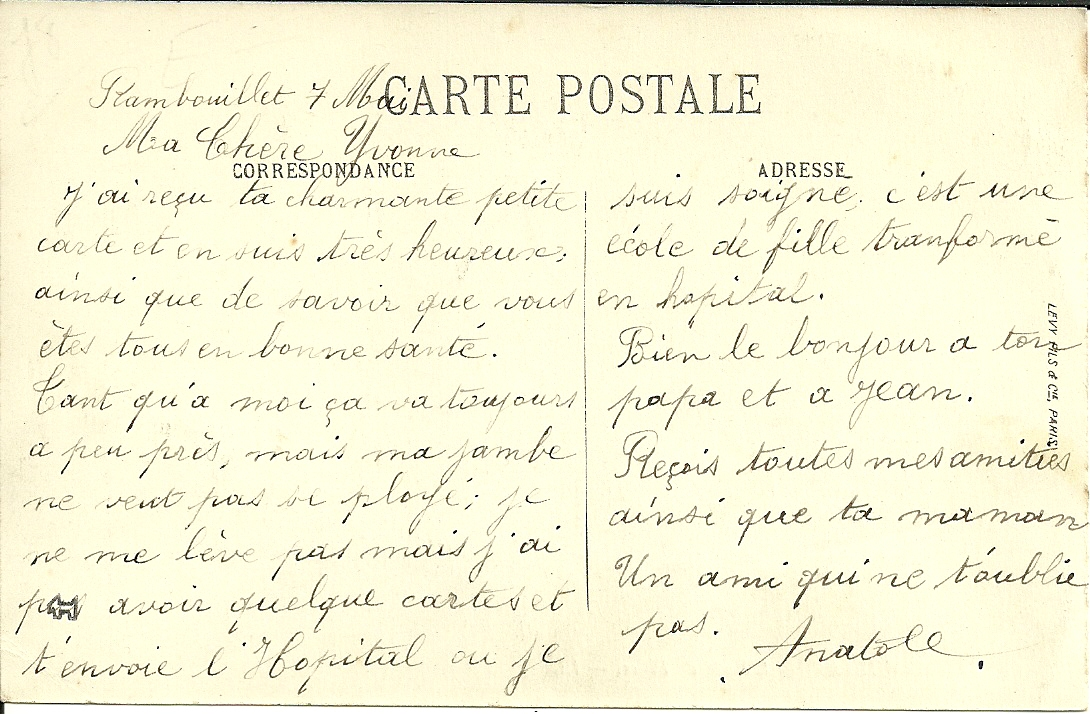 CARTE POSTALE
Rambouillet 7 Mai
Ma Chère Yvonne
CORRESPONDANCE
J'ai reçu ta charmante petite
carte et en suis très heureux.
ainsi que de savoir que vous
êtes tous en bonne santé.
Tant qu'a moi ça va toujours
a peu près, mais ma jambe
ne veut pas se ployé; je
ne me lève pas mais j'ai
pu avoir quelque cartes et
t'envoie l'Hopital ou je
ADRESSE
suis soigne, c'est une
école de fille tranforme
en hopital.
Bien le bonjour a ton
papa et a Jean.
Reçois toutes mes amities
ainsi que ta maman
Un ami qui ne t'oublie
pas.
Anatole.
LEVY FILS & Cie, PARIS